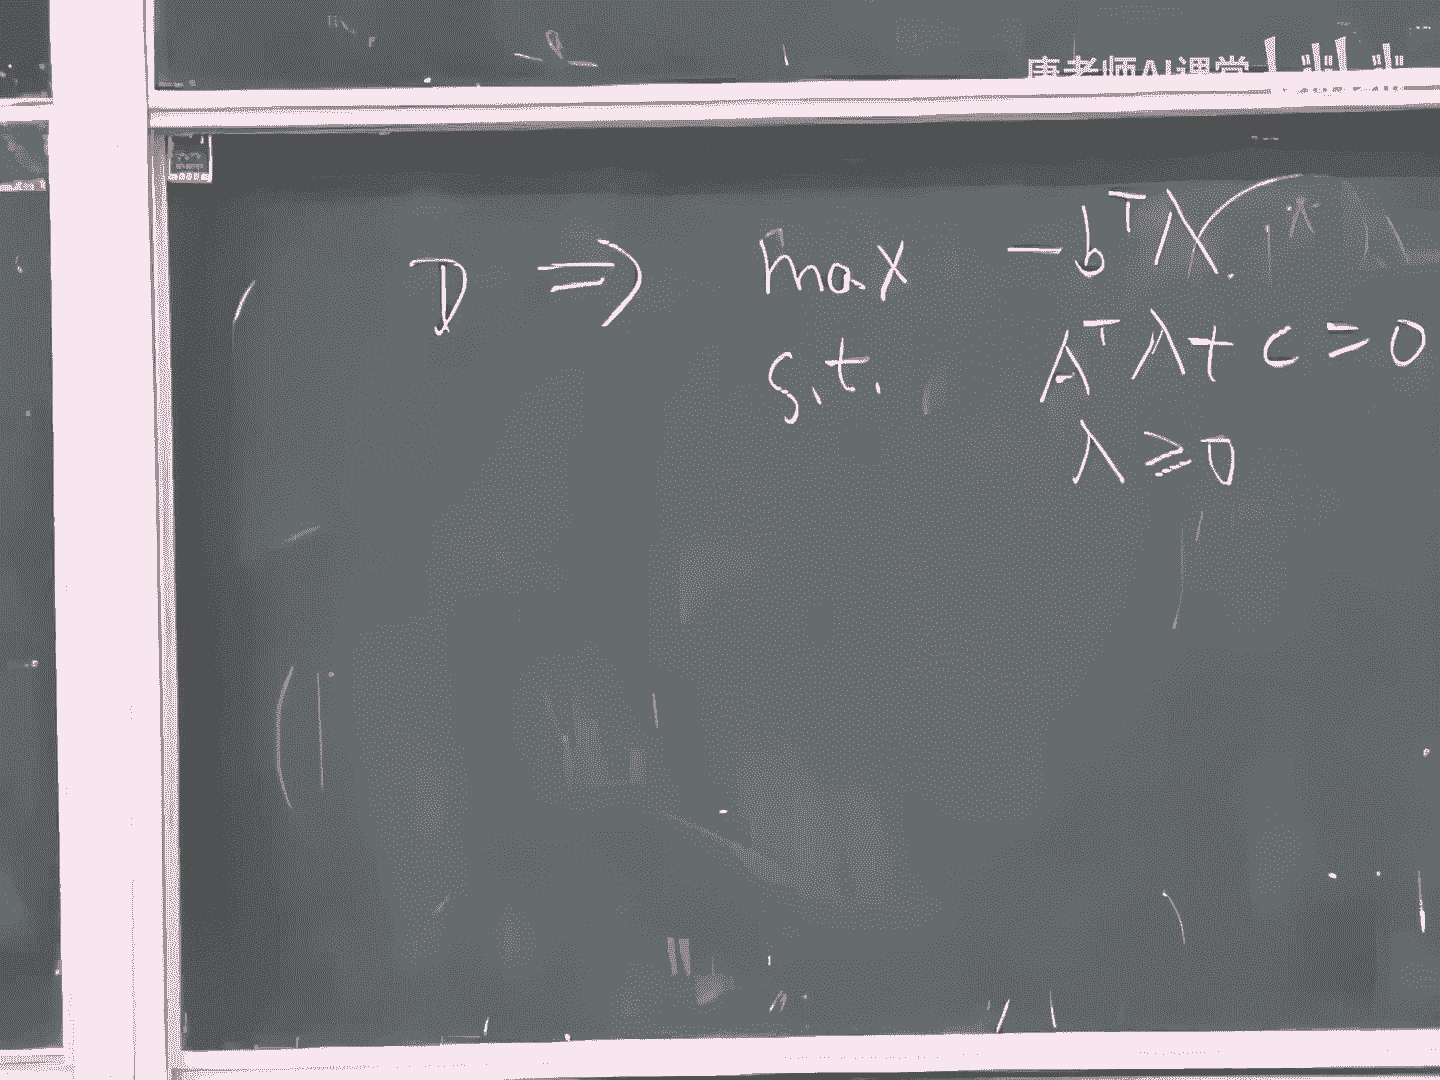 唐老师AI课堂
D ⇒ max −bᵀλ
s.t. Aᵀλ + c = 0
λ ≥ 0